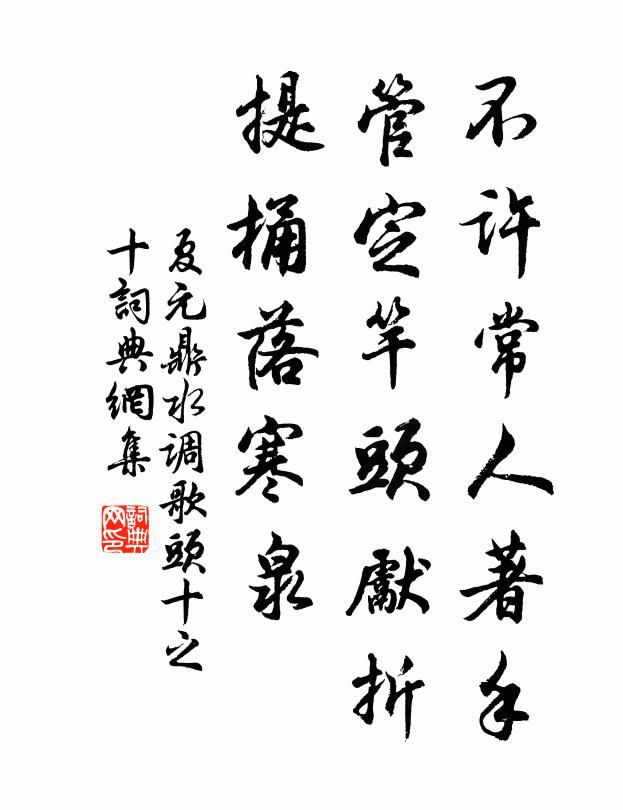 不許常人著手
管定竿頭獻折
提桶落寒泉
夏元鼎水调歌頭十之
十詞典網集
詞典
网印